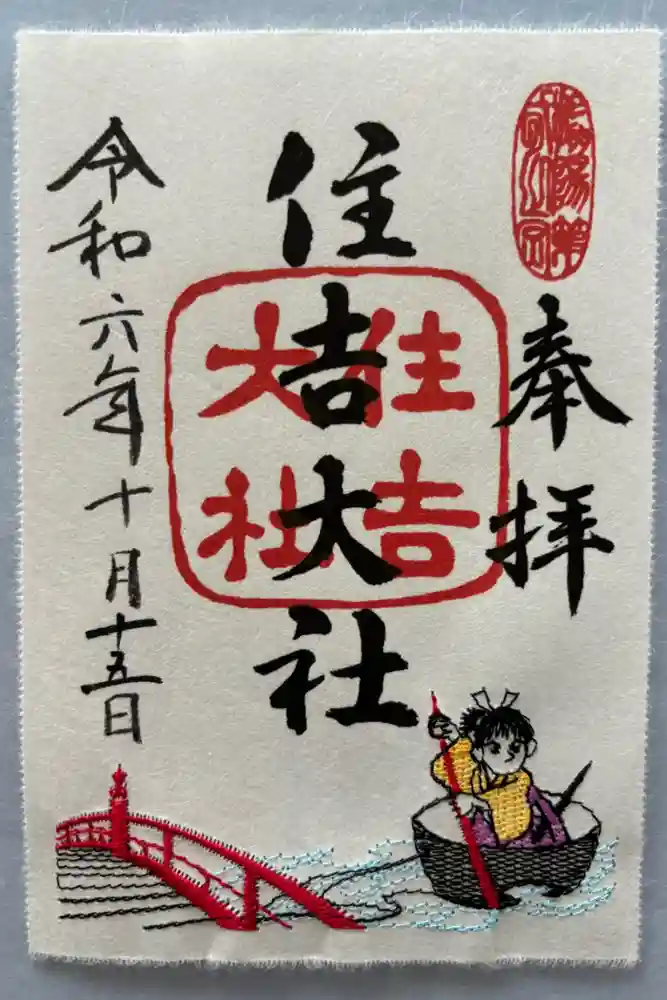 奉拝
住吉大社
住吉
大社
令和六年十月十五日